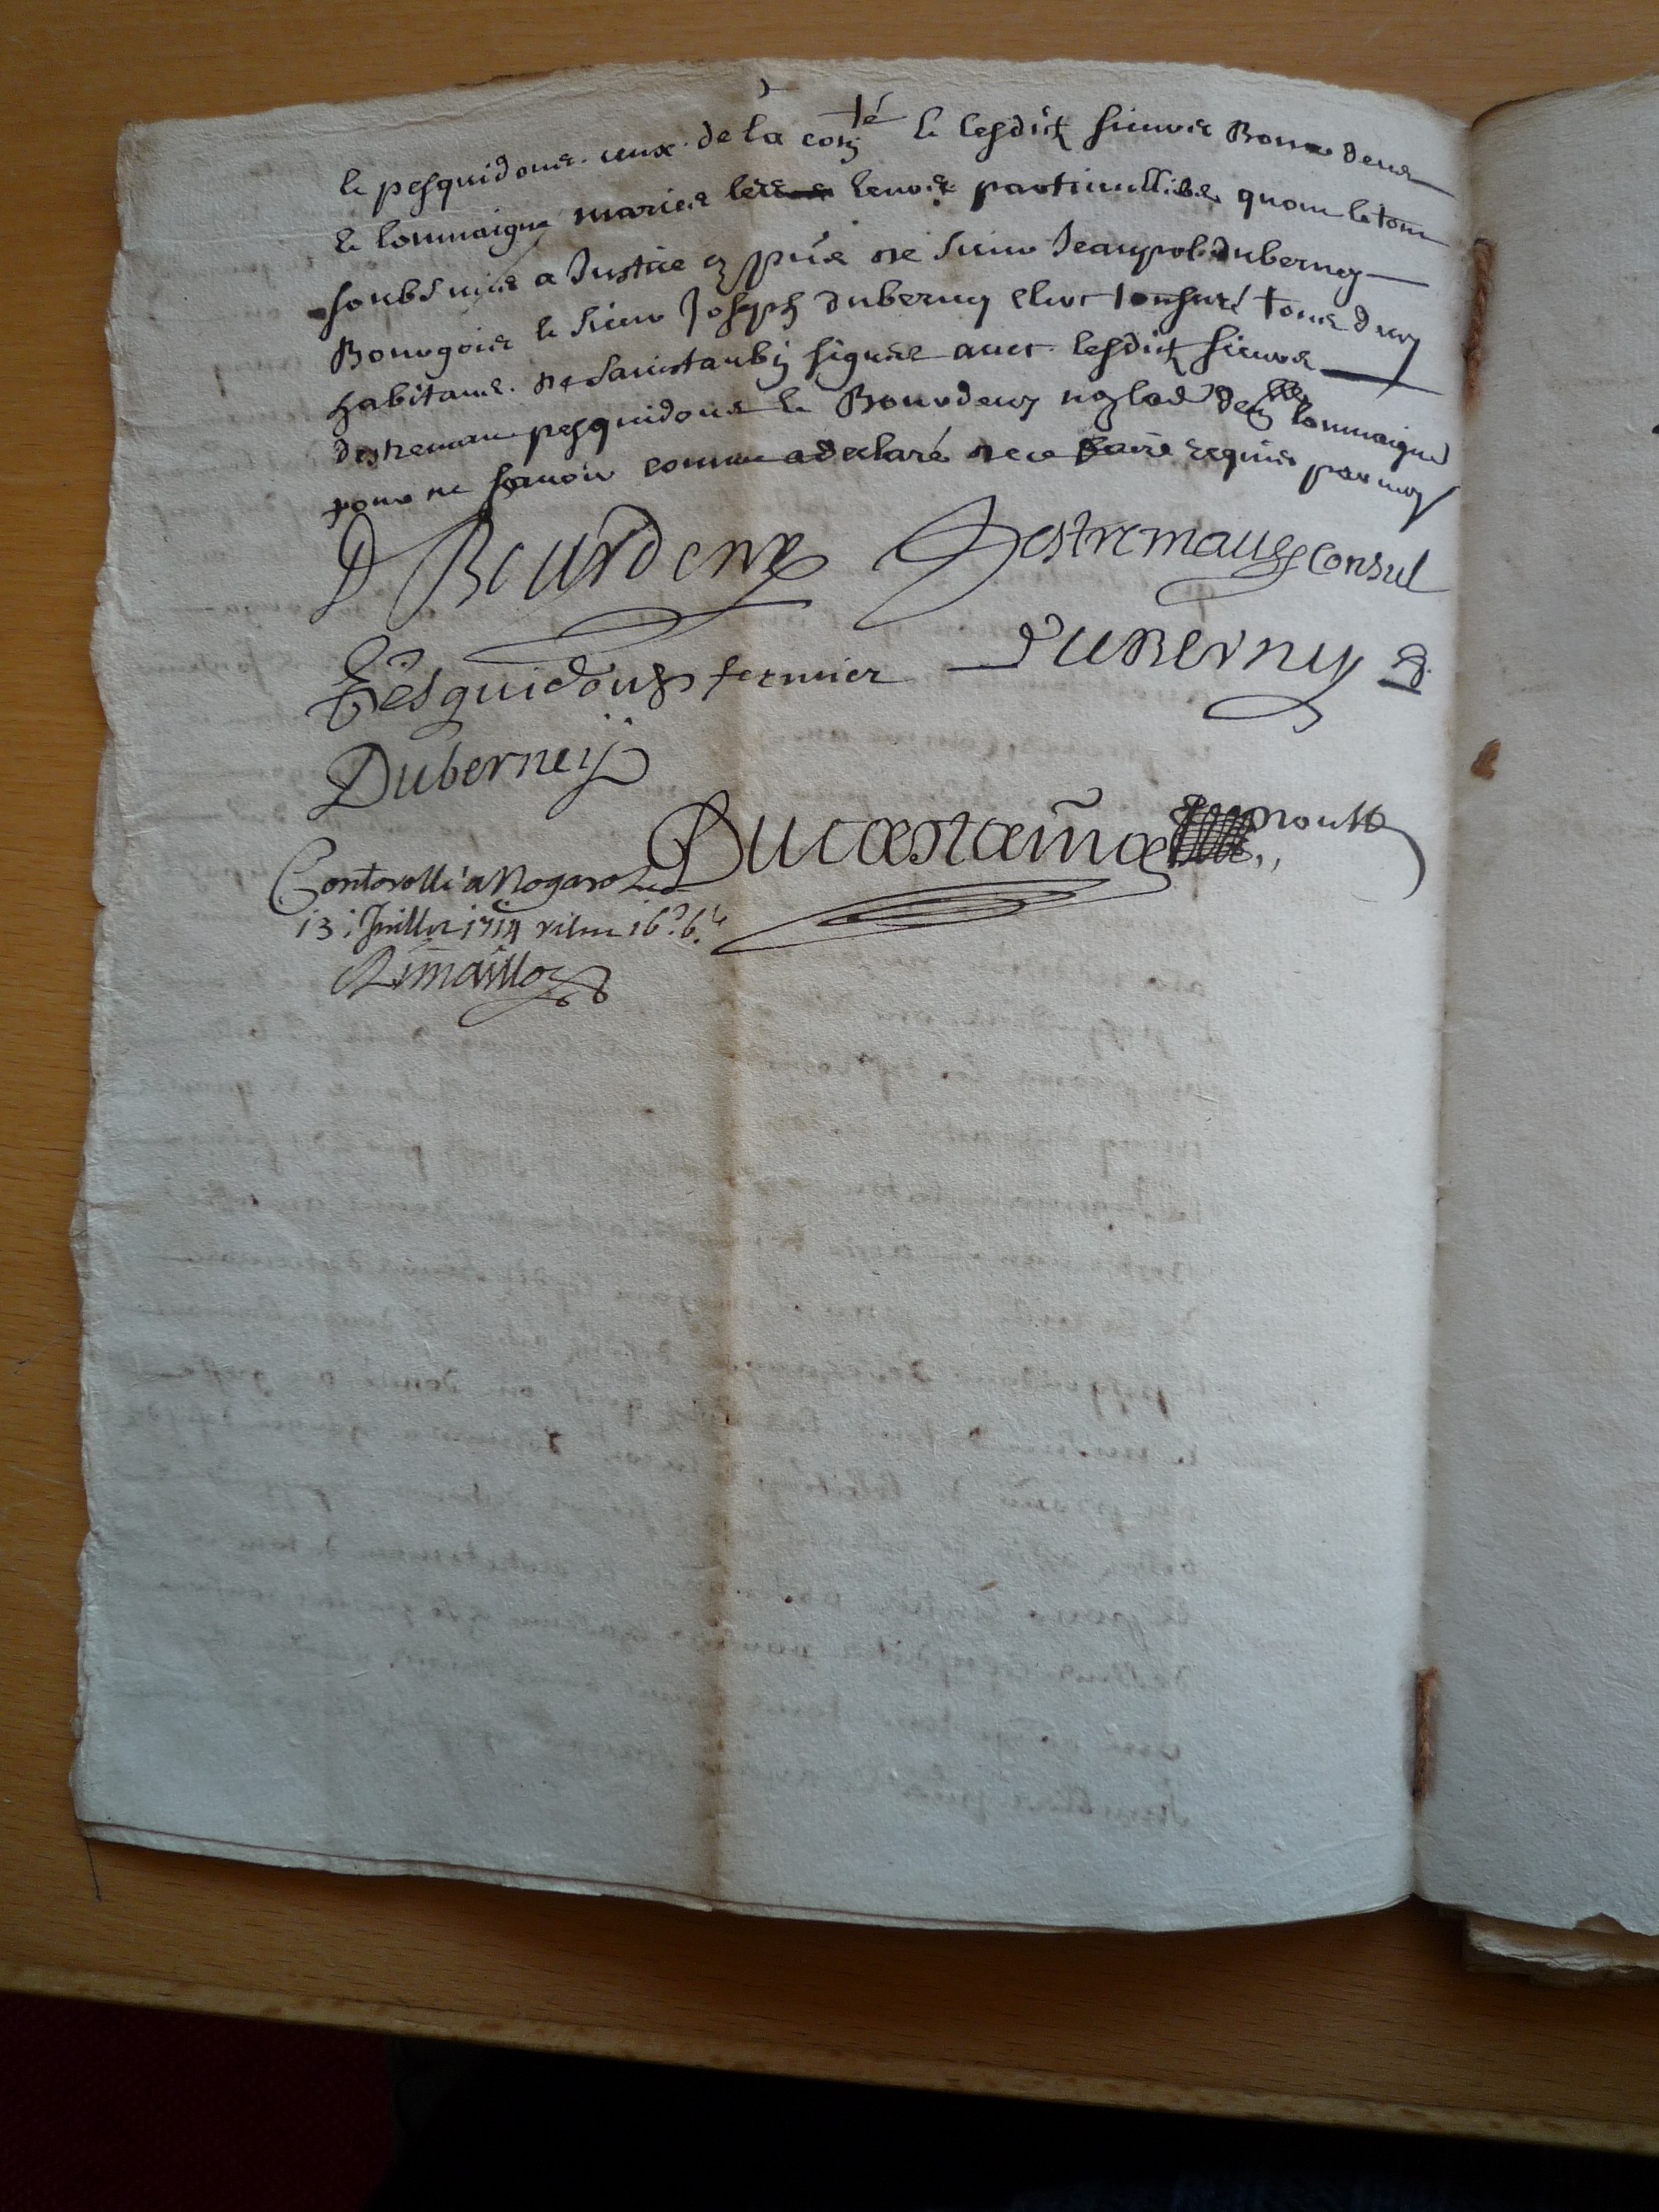 le pesquidoux ceux de la com^té le lesdits sieurs Bourdeux
le lommaigne maries leurs particulliers quont le tout
soubsmis a Justice en p^nce de sieur Jeanpol duberney
Bourgois le sieur Joseph duberney clerc tonsuré tous deux
habitans de Sainctaubin signés avec lesdits sieurs
destremau pesquidoux le Bourdeux non lad^e de lommaigne
pour ne savoir comme a declaré de ce faire requis par moy
D Bourdeux Destremau Consul
Pesquidoux fermier duberny
Duberney
Ducastaing
Controllé a Nogaro le
13 Juillet 1714